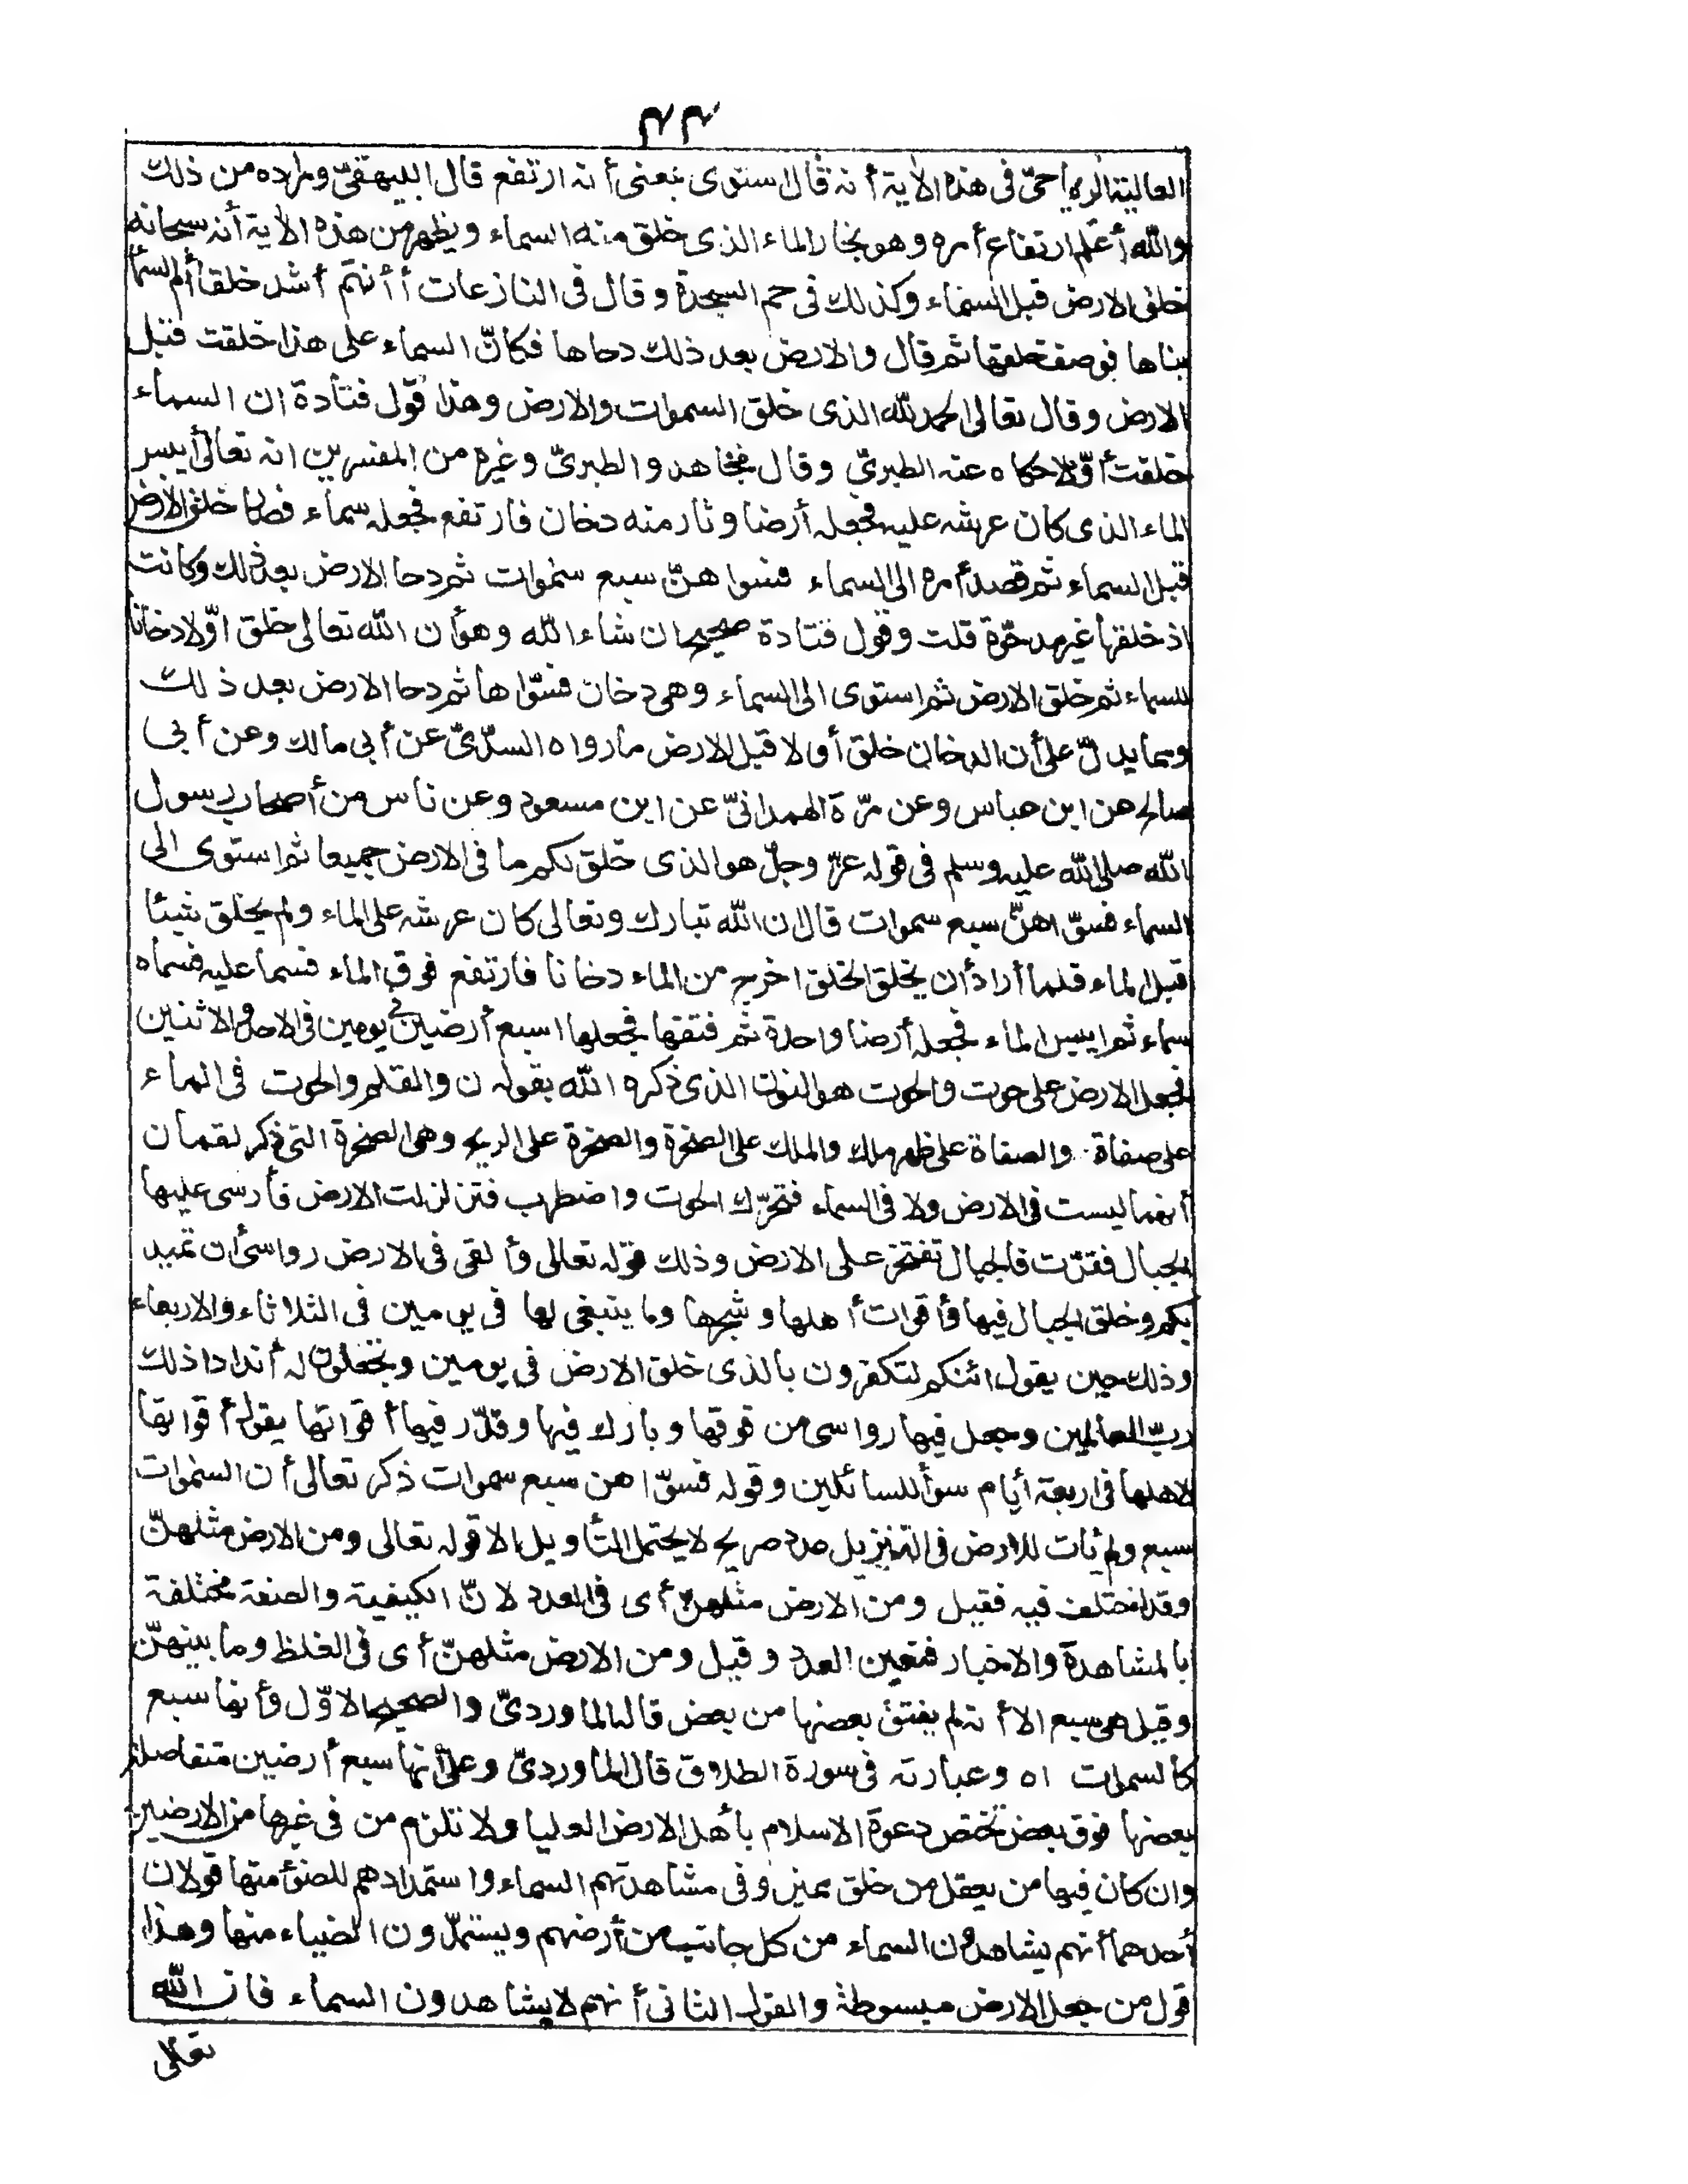 ٤٤
العالية الرياحىّ فى هذه الاية أنه قال استوى بمعنى أنه ارتفع قال البيهقىّ ومراده من ذلك
والله أعلم ارتفاع أمره وهو بخار الماء الذى خلق منه السماء ويظهر من هذه الاية أنه سبحانه
خلق الارض قبل السماء وكذلك فى حم السجدة وقال فى النازعات أأنتم أشد خلقا أم السماء
بناها فوصف خلقها ثم قال والارض بعد ذلك دحاها فكانّ السماء على هذا خلقت قبل
الارض وقال تعالى الحمد لله الذى خلق السموات والارض وهذا قول قتادة ان السماء
خلقت أوّلا حكاه عنه الطبرىّ وقال مجاهد والطبرىّ وغيره من المفسرين انه تعالى أيبس
الماء الذى كان عرشه عليه فجعله أرضا وثار منه دخان فارتفع فجعله سماء فصار خلق الارض
قبل السماء ثم قصد أمره الى السماء فسوا هنّ سبع سموات ثم دحا الارض بعد ذلك وكانت
اذ خلقها غير مدحوّة قلت وقول قتادة صحيح ان شاء الله وهو أن الله تعالى خلق اوّلا دخانا
للسماء ثم خلق الارض ثم استوى الى السماء وهى دخان فسوّاها ثم دحا الارض بعد ذلك
ومما يدلّ على أن الدخان خلق أولا قبل الارض ما رواه السدّىّ عن أبى مالك وعن أبى
صالح عن ابن عباس وعن مرّة الهمدانىّ عن ابن مسعود وعن ناس من أصحاب رسول
الله صلى الله عليه وسلم فى قوله عزّ وجلّ هو الذى خلق لكم ما فى الارض جميعا ثم استوى الى
السماء فسوّاهنّ سبع سموات قال ان الله تبارك وتعالى كان عرشه على الماء ولم يخلق شيئا
قبل الماء فلما أراد أن يخلق الخلق اخرج من الماء دخانا فارتفع فوق الماء فسما عليه فسماه
سماء ثم ايبس الماء فجعله أرضا واحدة ثم فتقها فجعلها اسبع أرضين فى يومين فى الاحد والاثنين
فجعل الارض على حوت والحوت هو النون الذى ذكره الله بقوله ن والقلم والحوت فى الماء
على صفاة والصفاة على ظهر ملك والملك على الصخرة والصخرة على الريح وهى الصخرة التى ذكر لقمان
أنهما ليست فى الارض ولا فى السماء فتحرّك الحوت واضطرب فتزلزلت الارض فأرسى عليها
الجبال فقرّت فالجبال تفتخر على الارض وذلك قوله تعالى وألقى فى الارض رواسى أن تميد
بكم وخلق الجبال فيها وأقوات أهلها وشجرها وما ينبغى لها فى يومين فى الثلاثاء والاربعاء
وذلك حين يقول ائنكم لتكفرون بالذى خلق الارض فى يومين وتجعلون له أندادا ذلك
ربّ العالمين وجعل فيها رواسى من فوقها وبارك فيها وقدّر فيها أقواتها يقول أقواتها
لاهلها فى اربعة أيام سوأ للسائلين وقوله فسوّاهن سبع سموات ذكر تعالى أن السموات
سبع ولم يأت للارض فى التنزيل عدد صريح لا يحتمل التأويل الا قوله تعالى ومن الارض مثلهنّ
وقد اختلف فيه فقيل ومن الارض مثلهنّ أى فى العدد لانّ الكيفية والصفة مختلفة
بالمشاهدة والاخبار فتعين العدد وقيل ومن الارض مثلهنّ أى فى الغلظ وما بينهنّ
وقيل هى سبع الا أنه لم يفتق بعضها من بعض قاله الماوردىّ والصحيح الاوّل وأنها سبع
كالسموات اه وعبارته فى سورة الطلاق قال الماوردىّ وعلى أنها سبع أرضين متفاصلة
بعضها فوق بعض تختص دعوة الاسلام بأهل الارض العليا ولا تلزم من فى غيرها من الارضين
وان كان فيها من يعقل من خلق مميز وفى مشاهدتهم السماء واستمدادهم للضوء منها قولان
أحدهما أنهم يشاهدون السماء من كل جانب من أرضهم ويستمدّون الضياء منها وهذا
قول من جعل الارض مبسوطة والقول الثانى أنهم لا يشاهدون السماء فان الله
تعالى